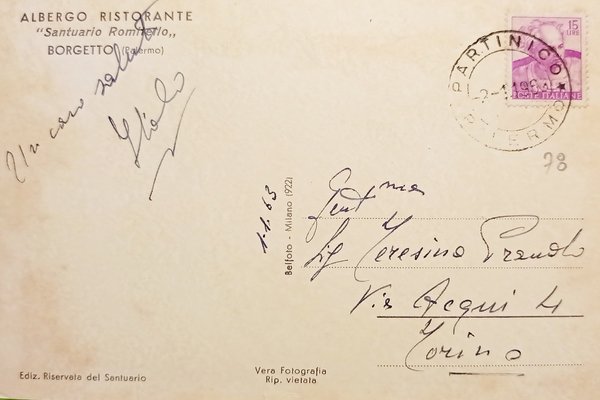 ALBERGO RISTORANTE
"Santuario Romitello„
BORGETTO (Palermo)
Un caro saluto
15
LIRE
POSTE ITALIANE
PARTINICO
PALERMO
78
1.1.63
Gent ma
Sig Teresina
Via Acqui 4
Torino
Belfoto - Milano (922)
Ediz. Riservata del Santuario
Vera Fotografia
Rip. vietata